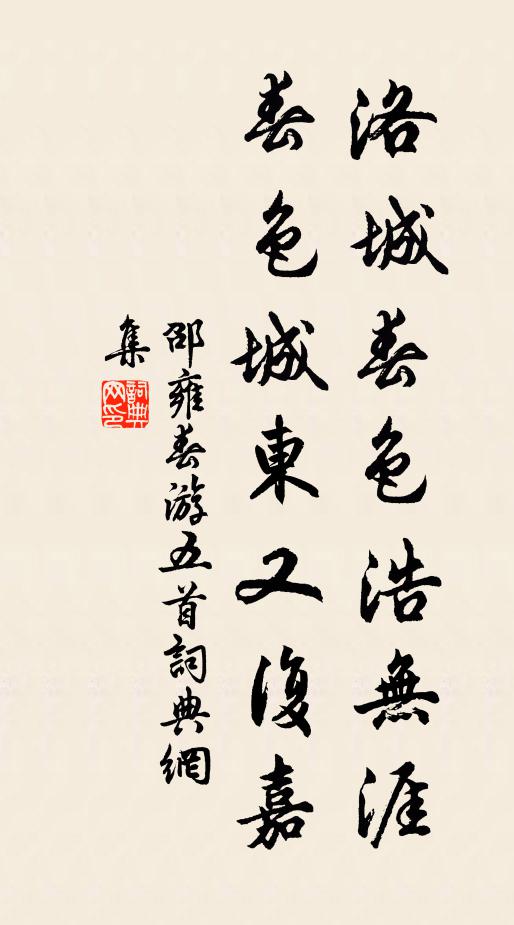 洛城春色浩無涯
春色城東又復嘉
邵雍春游五首詞典網
集
詞典网印